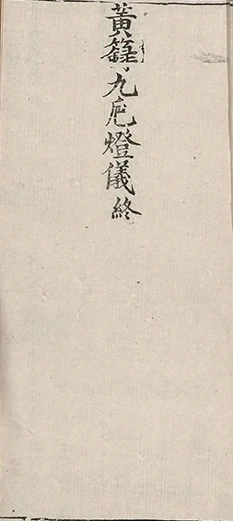 黃籙九巵燈儀終